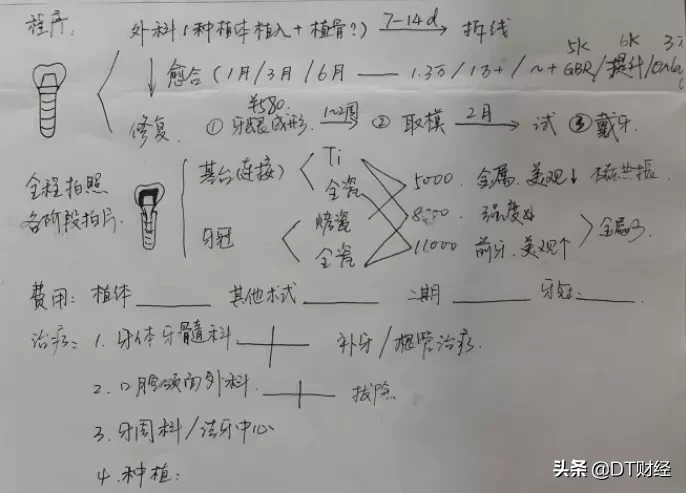 程序: 外科(种植体植入+植骨?) 7-14d 拆线
愈合(1月/3月/6月 — 1.3万/1万+/~+GBR/提升/Onlay
5K 6K 3万
单580.
修复. ① 牙龈成形. 1~2周 ② 取模 2月 试 ③ 戴牙.
全程拍照
各阶段拍片.
基台(连接) Ti 全瓷
牙冠 烤瓷 全瓷
5000. 金属. 美观↓ 核磁共振.
8000. 强度
11000 前牙. 美观个
费用: 植体 其他术式 二期 牙冠:
治疗: 1. 牙体牙髓科 补牙/根管治疗.
2. 口腔颌面外科. 拔除
3. 牙周科/洁牙中心
4. 种植:
头条 @DT财经